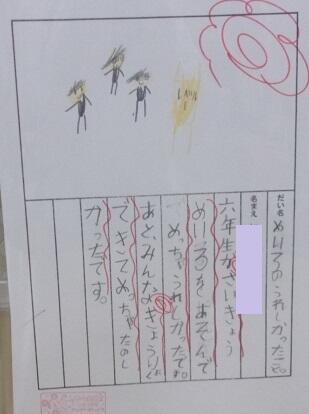 だい名 めいろのうれしかったこと。
名まえ
六年生がさいきょう
めいろをあそんで
めっちゃうれしかったです。
あと、みんな きょうりょく
できてめっちゃたのし
かったです。